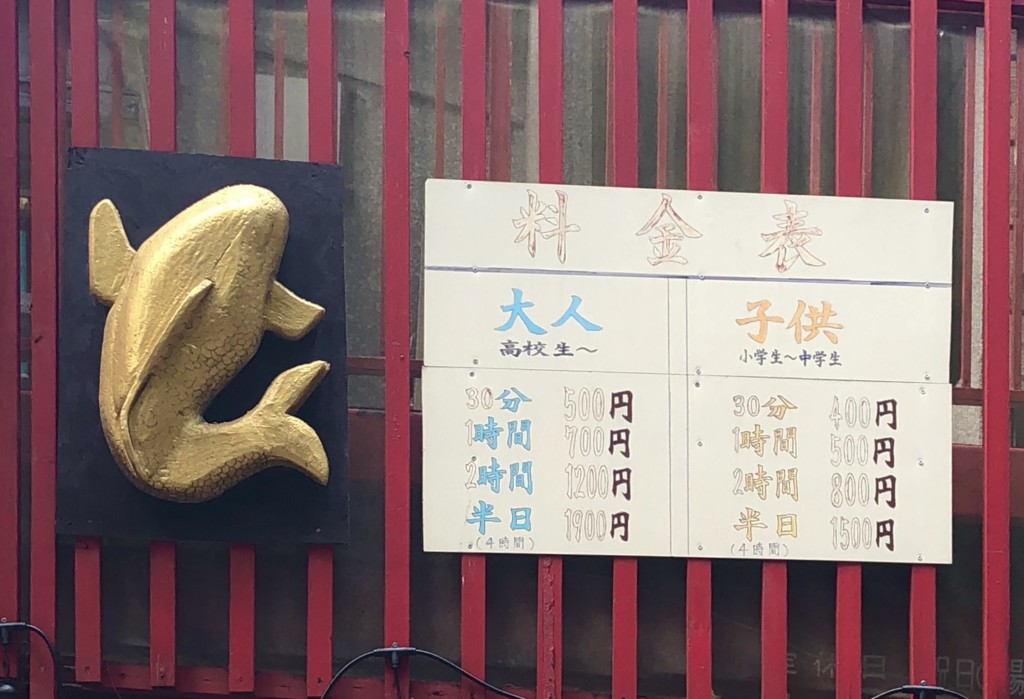 料金表
大人
高校生～
30分 500円
1時間 700円
2時間 1200円
半日 1900円
(4時間)
子供
小学生～中学生
30分 400円
1時間 500円
2時間 800円
半日 1500円
(4時間)